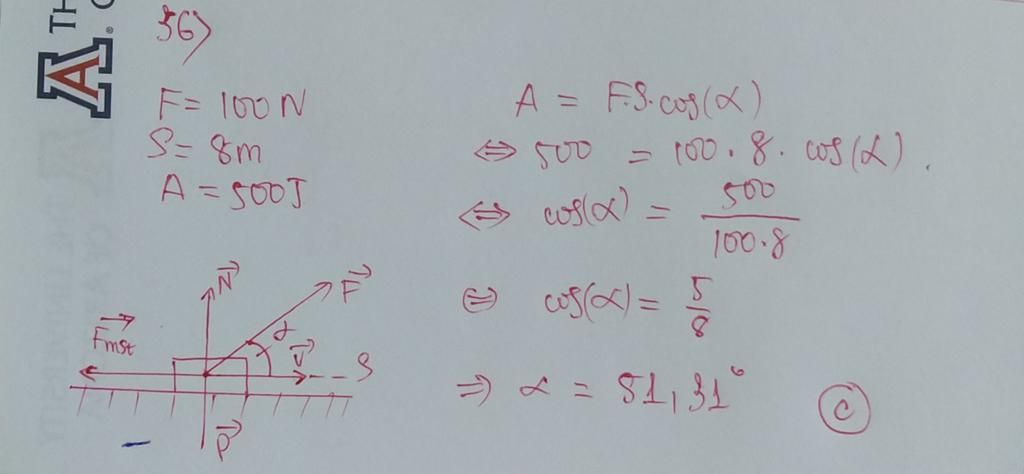 56)
F = 100N
S = 8m
A = 500J
A = F.S.cos(α)
⇔ 500 = 100 . 8 . cos(α).
⇔ cos(α) = 500 / 100.8
⇔ cos(α) = 5/8
⇒ α = 51,31°
C
N
F
α
Fmst
v
S
P
A
TH